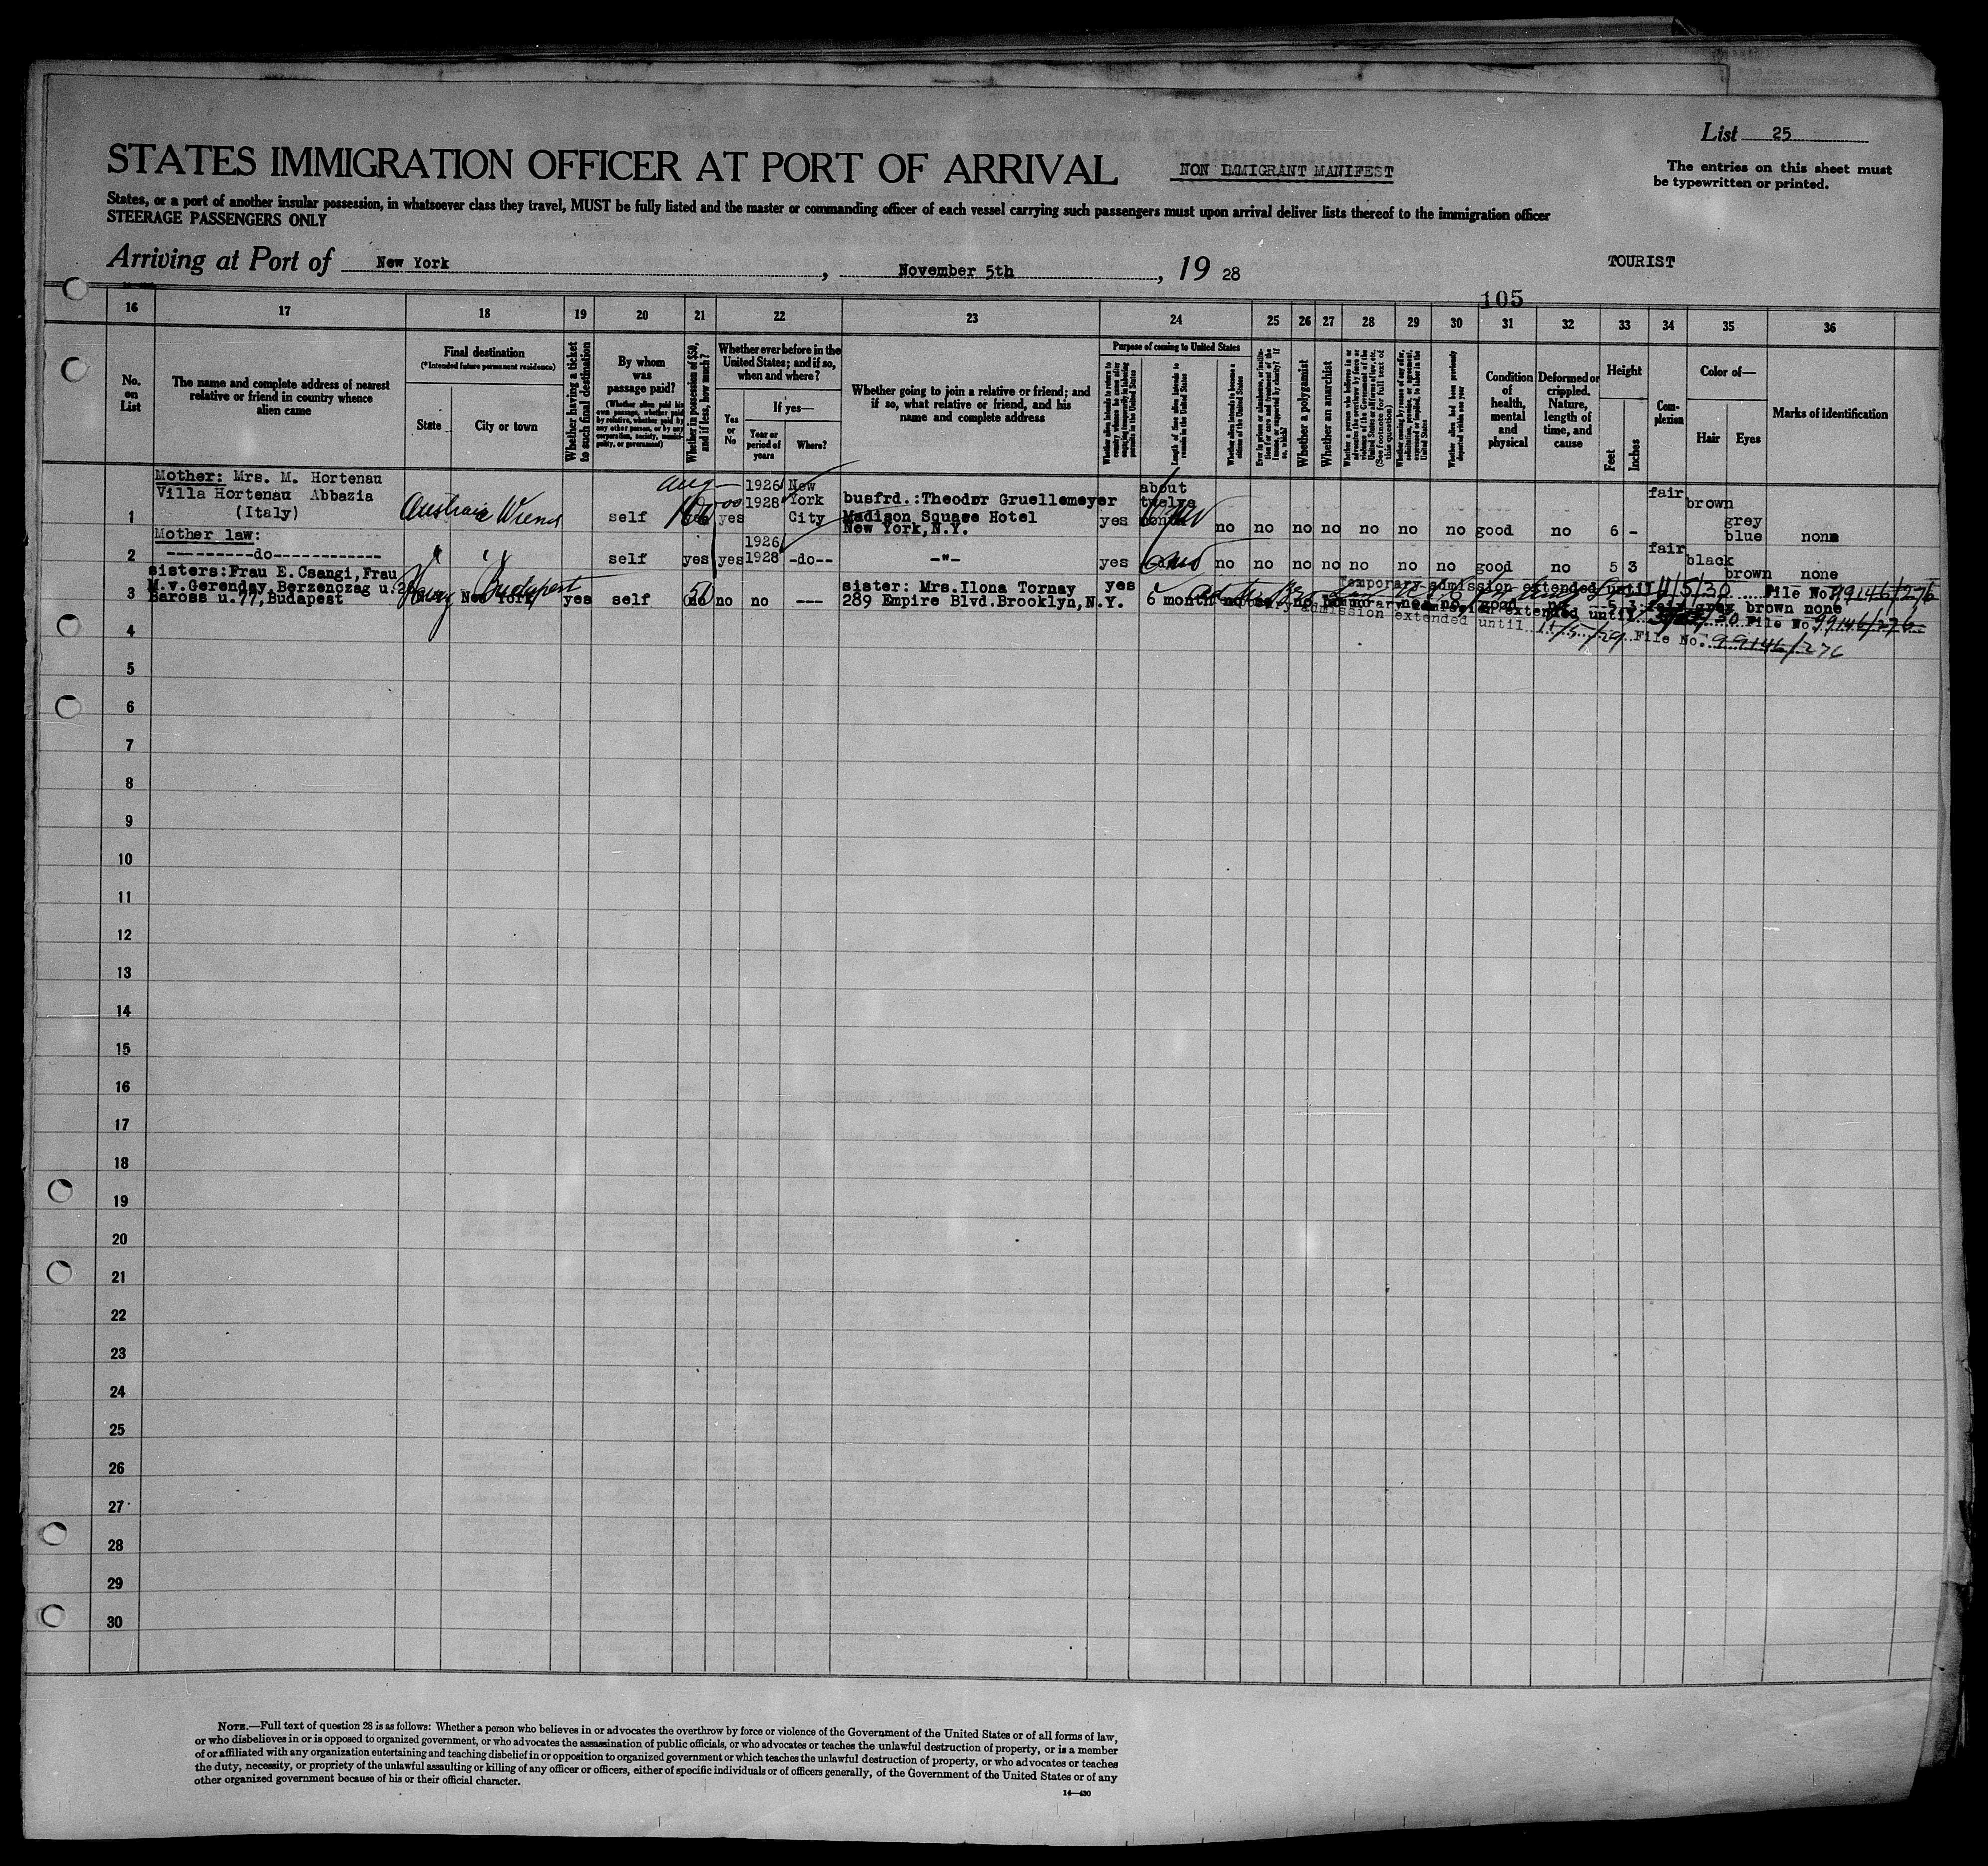 List 25
STATES IMMIGRATION OFFICER AT PORT OF ARRIVAL
NON IMMIGRANT MANIFEST
The entries on this sheet must
be typewritten or printed.
States, or a port of another insular possession, in whatsoever class they travel, MUST be fully listed and the master or commanding officer of each vessel carrying such passengers must upon arrival deliver lists thereof to the immigration officer
STEERAGE PASSENGERS ONLY
Arriving at Port of New York, November 5th, 19 28
TOURIST
105
16 17 18 19 20 21 22 23 24 25 26 27 28 29 30 31 32 33 34 35 36
No. on List
The name and complete address of nearest relative or friend in country whence alien came
Final destination
(*Intended future permanent residence)
State
City or town
Whether having a ticket to such final destination
By whom was passage paid?
(Whether alien paid his own passage, whether paid by relative, whether paid by any other person, or by any corporation, society, municipality, or government)
Whether in possession of $50, and if less, how much?
Whether ever before in the United States; and if so, when and where?
Yes or No
If yes—
Year or period of years
Where?
Whether going to join a relative or friend; and if so, what relative or friend, and his name and complete address
Purpose of coming to United States
Whether alien intends to return to country whence he came after engaging temporarily in laboring pursuits in the United States
Length of time alien intends to remain in the United States
Whether alien intends to become a citizen of the United States
Ever in prison or almshouse, or institution for care and treatment of the insane, or supported by charity? If so, which?
Whether a polygamist
Whether an anarchist
(See footnote for full text of this question)
Whether alien had been previously deported within one year
Condition of health, mental and physical
Deformed or crippled. Nature, length of time, and cause
Height
Feet
Inches
Complexion
Color of—
Hair
Eyes
Marks of identification
1 Mother: Mrs. M. Hortenau
Villa Hortenau Abbazia
(Italy)
Austria Wien self yes 1926 1928 New York City
busfrd.:Theodor Gruellemeyer
Madison Square Hotel
New York,N.Y.
yes about twelve no no no no no no no good no 6 - fair brown grey blue none
2 Mother law:
-----------do------------
" " self yes yes 1926 1928 -do-- -"- yes no no no no no no no good no 5 3 fair black brown none
3 sisters:Frau E.Csangi,Frau
M.v.Gerenday,Berzenczag u.
Baross u.77,Budapest
Hung Budapest
New York yes self 50 no no ---
sister: Mrs.Ilona Tornay
289 Empire Blvd.Brooklyn,N.Y.
yes 6 month brown none
Temporary admission extended until 11/5/30 File No. 99146/276
admission extended until 30 File No. 99146/276
admission extended until 11/5/29 File No. 99146/276
4
5
6
7
8
9
10
11
12
13
14
15
16
17
18
19
20
21
22
23
24
25
26
27
28
29
30
NOTE.—Full text of question 28 is as follows: Whether a person who believes in or advocates the overthrow by force or violence of the Government of the United States or of all forms of law,
or who disbelieves in or is opposed to organized government, or who advocates the assassination of public officials, or who advocates or teaches the unlawful destruction of property, or is a member
of or affiliated with any organization entertaining and teaching disbelief in or opposition to organized government or which teaches the unlawful destruction of property, or who advocates or teaches
the duty, necessity, or propriety of the unlawful assaulting or killing of any officer or officers, either of specific individuals or of officers generally, of the Government of the United States or of any
other organized government because of his or their official character.
14—430